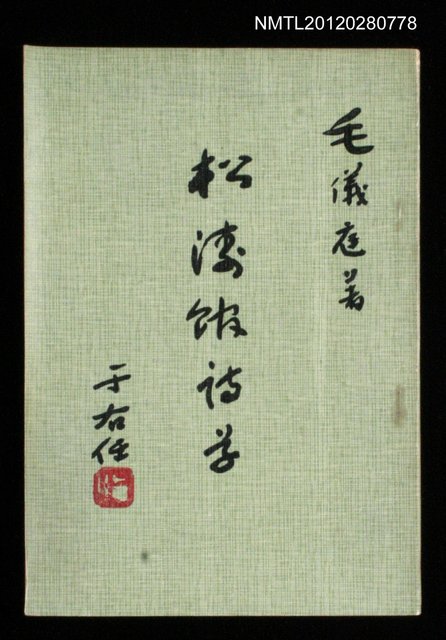 NMTL20120280778
毛儀庭著
松濤館詩草
于右任